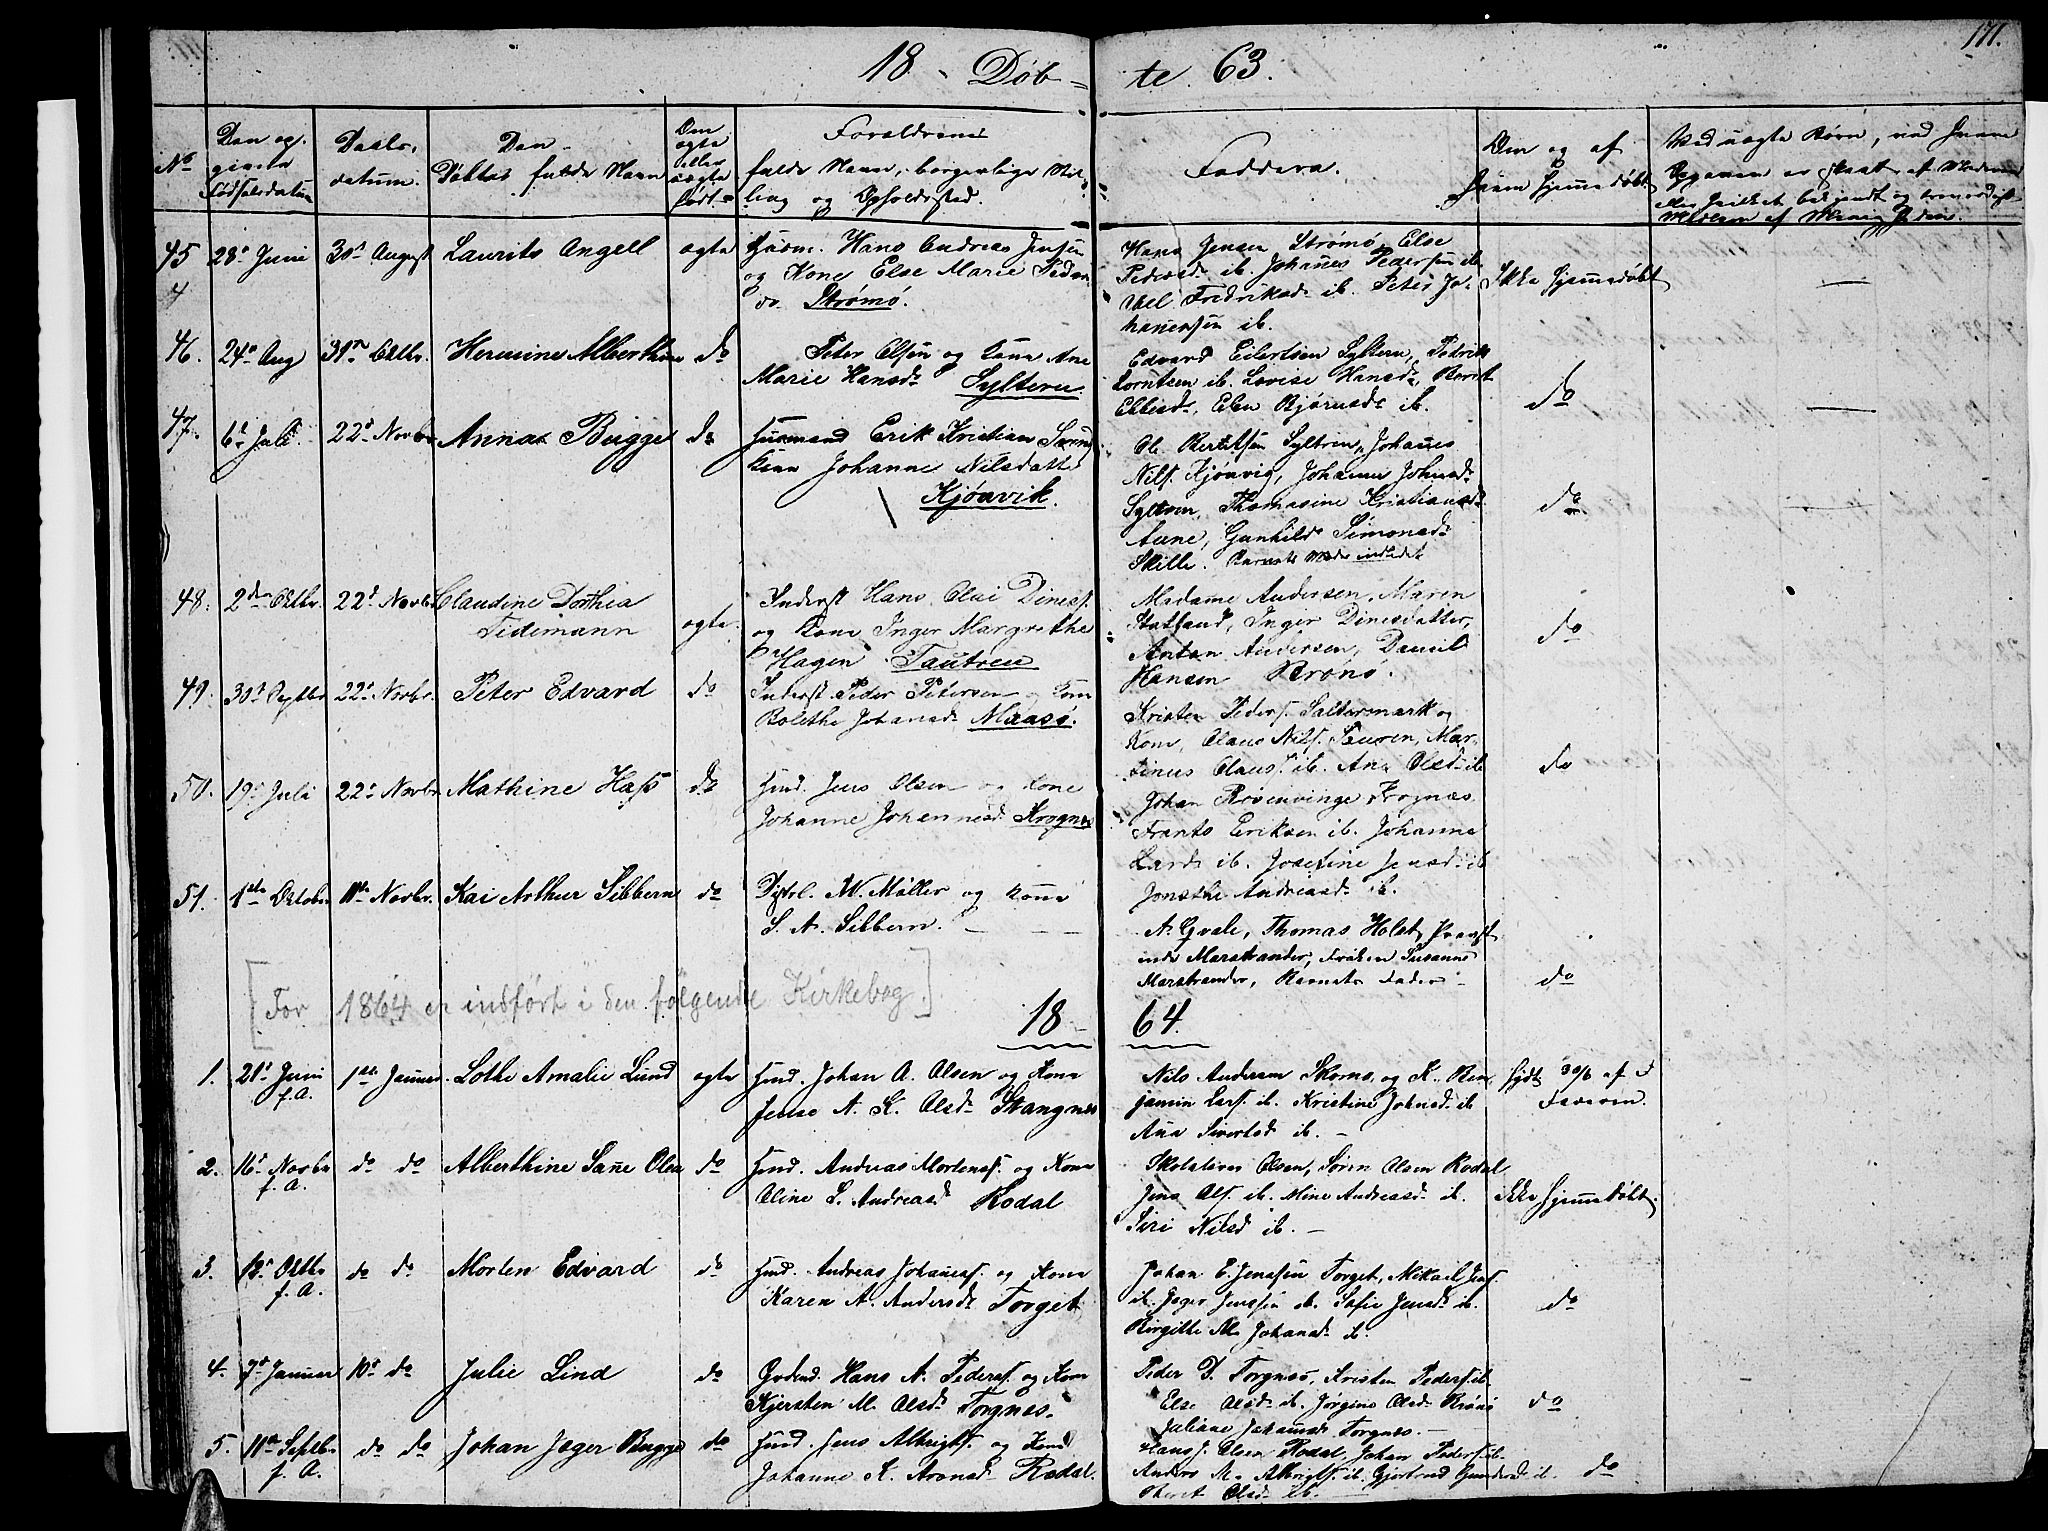 171.
18 - Døb = te. 63.
No
Den op-
givne
Fødselsdatum
Daabs-
datum.
Den
Døbtes fulde Navn
Om
ægte
eller
uægte
født.
Forældrenes
fulde Navn, borgerlige Stil-
ling og Opholdssted.
Faddere.
Om og af
hvem hjemmedøbt
45 28de Juni 30te August Laurits Angell ægte Husm. Hans Andreas Jensen
og Kone Else Marie Peders
do Strømø.
Hans Jensen Strømø, Else
Pedersd ib. Johanes Pedersen ib
Fredriksd. ib. Peter Jo-
hanesen ib.
Ikke hjemmedøbt
4
46. 24de Aug 31te Octbr. Hermine Alberthine do Peter Olsen og Kone Ane
Marie Hansd. Sylteren
Edvard Eilertsen Sylteren, Pedrik
Lorntsen ib. Lovise Hansd., Berit
Ellisd., Elen Bjørnsd. ib.
do
47. 6te Juli 22d Novbr Anna Bugge do Husmand Erik Kristian
Kone Johanne Nilsdatter
Kjønvik.
Ole Beritsen Syltern, Johanes
Nils. Kjønvig, Johanne Johnsd.
Syltern, Thomasine Kristiansd.
Aune, Gunhild Simonsd.
Skille. Barnets Moder indledet
do
48. 2den Octbr. 22d Novbr Claudine Dorthea
Tidemann
ægte. Inderst Hans Olai Dines.
og Kone Inger Margrethe
Hagen Tautren
Madame Andersen, Maren
Statland, Inger Dinesdatter,
Anton Andersen, Daniel
Hansen Brønø.
do
49. 30te Septbr 22d Novbr. Peter Edvard do Inderst Peder Petersen og Kone
Bolethe Johansd. Maasø.
Kristen Peders. Saltermark og
Kone, Olaus Nils. Teuren, Mar-
tinus Olaus. ib. Ane Olsd. ib
do
50. 19de Juli 22d Novbr Mathine Hass do Hmd. Jens Olsen og Kone
Johanne Johannesd. Krognes
Johan Rosenvinge Krognæs
Frants Eriksen ib. Johanne
Larsd. ib. Josefine Jensd. ib
Jonethe Andreasd. ib.
51. 1ste October 11te Novbr. Kai Arthur Sibbern do W. Møller og Kone
S. A. Sibbern.
A. Qvale, Thomas Holst, Provst-
inde Marstrander, Frøken Susanne
Marstrander, Barnets Fader
do
[For 1864 er indført i den følgende Kirkebog.]
18 - 64.
1. 21d Juni
f. A.
1ste Januar. Lothe Amalie Lund ægte Hmd. Johan A. Olsen og Kone
Jense A. K. Olsd. Stangnes
Nils Andersen Skorns. og K. Ben-
jamin Lars. ib. Kristine Johnsd. ib
Ana Sivertsd ib.
Hjdt 30/6 af J
2. 16d Novbr
f. A.
do do Alberthine Sane Olsen do Hmd. Andreas Mortens. og Kone
Oline S. Andreasd. Rodal
Olsen, Søren Olsen Rodal,
Jens Ols. ib. Mine Andreasd. ib.
Siri Nilsd ib.
ikke hjemmedøbt.
3. 12d Octbr
f. A.
do do Morten Edvard do Hmd. Andreas Johanes. og Kone
Karen A. Andersd. Torget
Johan E. Jenssen Torget, Mikael Jens.
ib. Jæger Jenssen ib. Sofie Jensd. ib.
Birgitte M. Johansd. ib.
do
4. 7d Januar 10d do Julie Lind do Gbmd. Hans A. Peders. og Kone
Kjersten M. Olsd. Torgnes.
Peder D. Torgnes, Kristen Peders. ib.
Else Olsd. ib. Jørgine Olsd. Brønø
Juliane Johansd. Torgnes.
do
5. 11te Septbr
f. A.
do do Johan Jæger Bugge do Hmd. Jens Albrigts. og Kone
Johanne K. Aronsd. Rodal.
Hans J. Olsen Rodal, Johan Peders. ib.
Anders M. Albrigts. ib. Gjertrud Gundersd. ib.
Beret Olsd. ib.
do